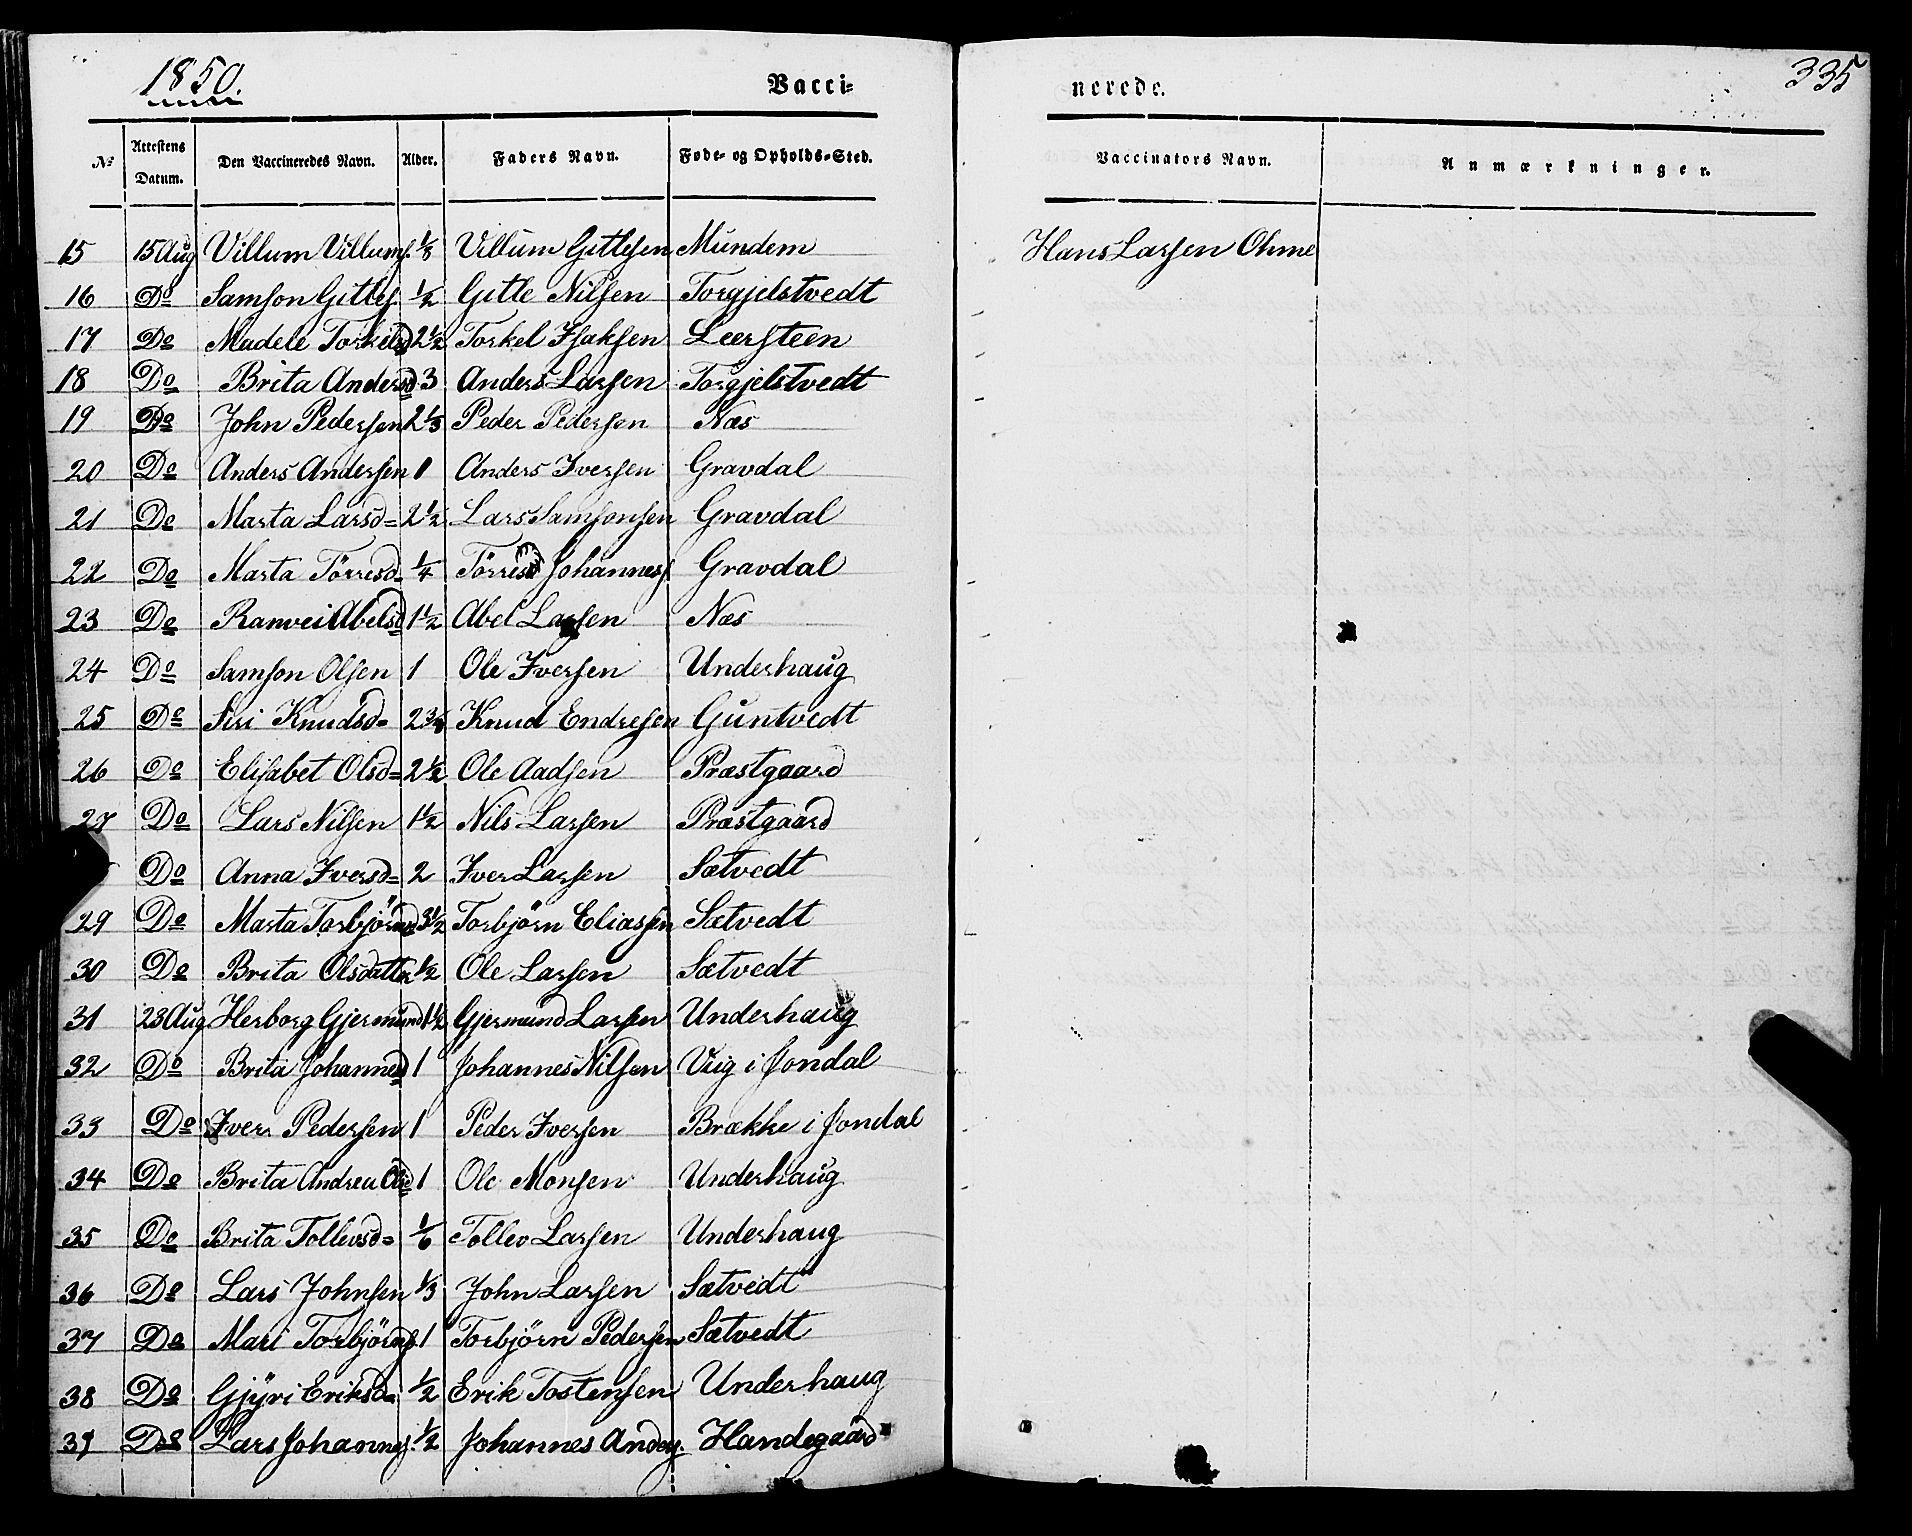 1850.
Vacci-
nerede.
335
No
Attestens Datum.
Den Vaccineredes Navn.
Alder.
Faders Navn.
Føde- og Opholds-Sted.
Vaccinators Navn.
Anmærkninger.
15 15 Aug Villum Villums. 1/8 Villum Gitlesen Mundem Hans Larsen Ohme
16 Do Samson Gitles. 1/2 Gitle Nilsen Torgjelstvedt
17 Do Madele Torkilsd 2 1/2 Torkel Isaksen Leersteen
18 Do Brita Andersd 3 Anders Larsen Torgjelstvedt
19 Do John Pedersen 2 1/3 Peder Pedersen Næs
20 Do Anders Andersen 1 Anders Iversen Gravdal
21 Do Marta Larsd= 2 1/2 Lars Samsonsen Gravdal
22 Do Marta Törrisd= 1/4 Törris Johanness Gravdal
23 Do Ranvei Abelsd 1 1/2 Abel Larsen Næs
24 Do Samson Olsen 1 Ole Iversen Underhaug
25 Do Siri Knudsd= 2 3/4 Knud Endresen Guntvedt
26 Do Elisabet Olsd= 2 1/2 Ole Aadsen Præstgaard
27 Do Lars Nilsen 1 1/2 Nils Larsen Præstgaard
Do Anna Iversd= 2 Iver Larsen Sætvedt
29 Do Marta Torbjörnsd 3 1/2 Torbjörn Eliassen Sætvedt
30 Do Brita Olsdatter 1/2 Ole Larsen Sætvedt
31 23 Aug Herborg Gjermund 1 1/2 Gjermund Larsen Underhaug
32 Do Brita Johannesd 1 Johannes Nilsen Viig i Jondal
33 Do Iver Pedersen 1 Peder Iversen Brække i Jondal
34 Do Brita Andrea Olsd 1 Ole Monsen Underhaug
35 Do Brita Tollevsd= 1/6 Tollev Larsen Underhaug
36 Do Lars Johnsen 1/3 John Larsen Sætvedt
37 Do Mari Torbjörns. 1 Torbjörn Pedersen Sætvedt
38 Do Gjyri Eriksd= 1/2 Erik Tostensen Underhaug
39 Do Lars Johannes. 1/2 Johannes Anders. Handegaard